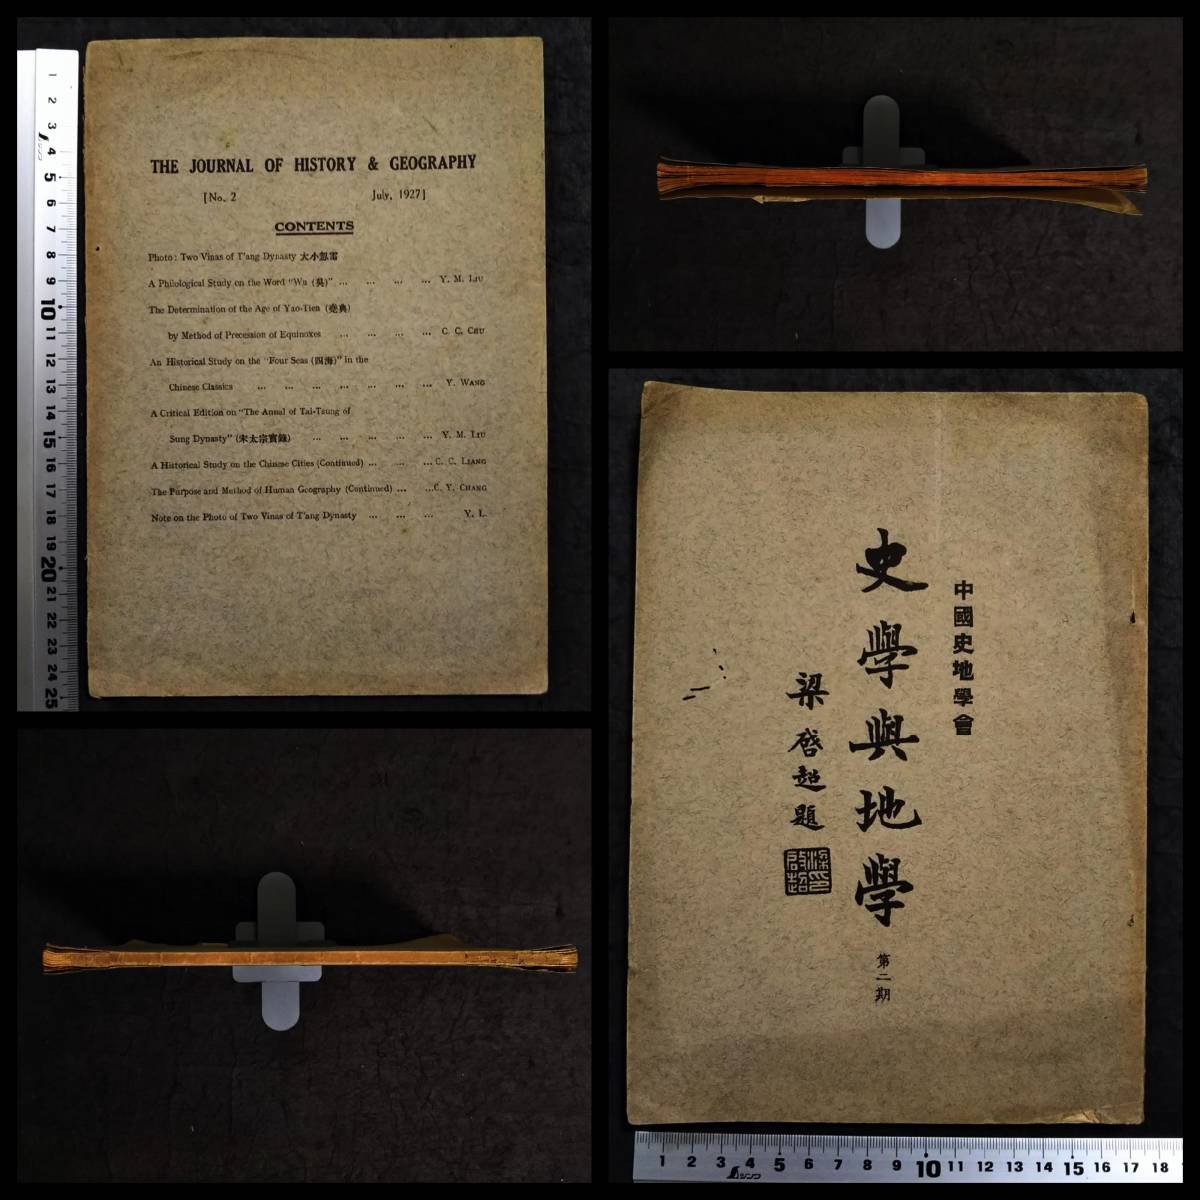 THE JOURNAL OF HISTORY & GEOGRAPHY
[No. 2 July, 1927]
CONTENTS
Photo: Two Vinas of T'ang Dynasty 大小忽雷
A Philological Study on the Word "Wu (吳)" ... ... ... ... Y. M. LIU
The Determination of the Age of Yao-Tien (堯典)
by Method of Precession of Equinoxes ... ... ... ... C. C. CHU
An Historical Study on the "Four Seas (四海)" in the
Chinese Classics ... ... ... ... ... ... ... Y. WANG
A Critical Edition on "The Annal of Tai-Tsung of
Sung Dynasty" (宋太宗實錄) ... ... ... ... ... Y. M. LIU
A Historical Study on the Chinese Cities (Continued) ... ... ... C. C. LIANG
The Purpose and Method of Human Geography (Continued) ... ...C. Y. CHANG
Note on the Photo of Two Vinas of T'ang Dynasty ... ... ... Y. L.
1 2 3 4 5 6 7 8 9 10 11 12 13 14 15 16 17 18 19 20 21 22 23 24 25
シンワ
中國史地學會
史學與地學
第二期
梁啓超題
梁啓超印
1 2 3 4 5 6 7 8 9 10 11 12 13 14 15 16 17 18
シンワ